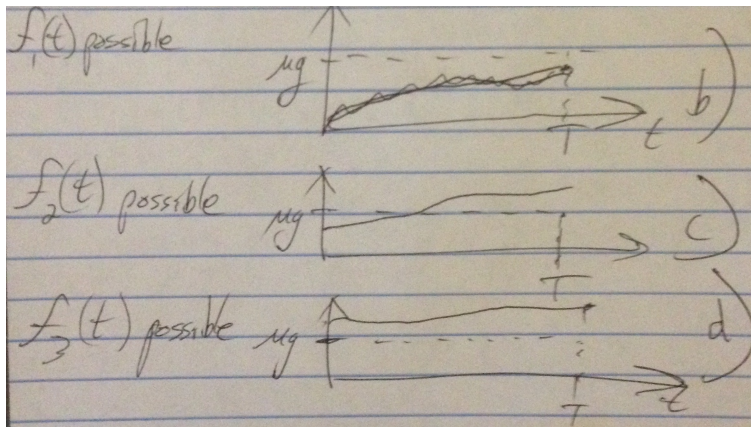 f₁(t) possible
μg
T
t
b)
f₂(t) possible
μg
T
c)
f₃(t) possible
μg
T
t
d)